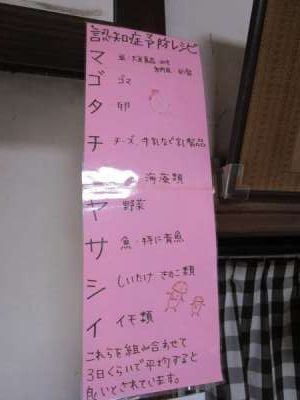 認知症予防レシピ
マ 豆・大豆食品
ゴ ゴマ
タ 卵
チ チーズ、牛乳など乳製品
海藻類
ヤ 野菜
サ 魚・特に青魚
シ しいたけ きのこ類
イ イモ類
これらを組み合わせて
3日くらいで平均すると
良いとされています。